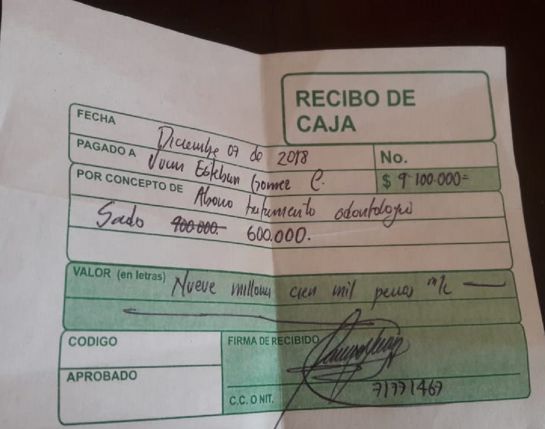 RECIBO DE
CAJA
FECHA Diciembre 07 de 2018
PAGADO A Juan Esteban Gomez C.
No.
$ 9 100.000=
POR CONCEPTO DE Abono tratamiento odontologico
Sado 900.000. 600.000.
VALOR (en letras) Nueve millones cien mil pesos m/c
CODIGO
FIRMA DE RECIBIDO
APROBADO
C.C. O NIT. 71771467